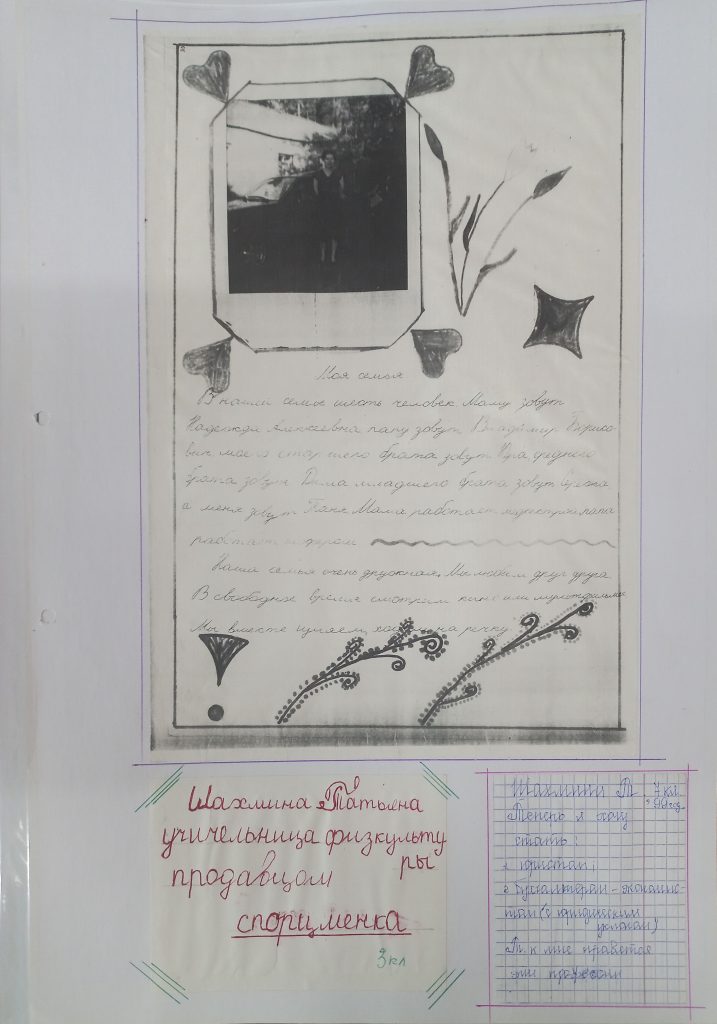 Моя семья
В нашей семье шесть человек. Маму зовут
Надежда Алексеевна папу зовут Владимир Борисо-
вич, моего старшего брата зовут среднего
брата зовут Дима младшего брата зовут
а меня зовут Таня Мама работает папа
работает шофером
Наша семья очень дружная. Мы любим друг друга
В свободное время смотрим кино или мультфильмы
Мы вместе гуляем, ходим на речку
Шахмина Татьяна
учичельница физкульту
ры
продавцом
спорцменка
3 кл
Шахмина Т 7 кл.
99 год.
Теперь я хочу
стать:
юристом;
бухгалтером - экономис-
том (с юридическим
уклоном)
Т. к мне нравятся
эти професии